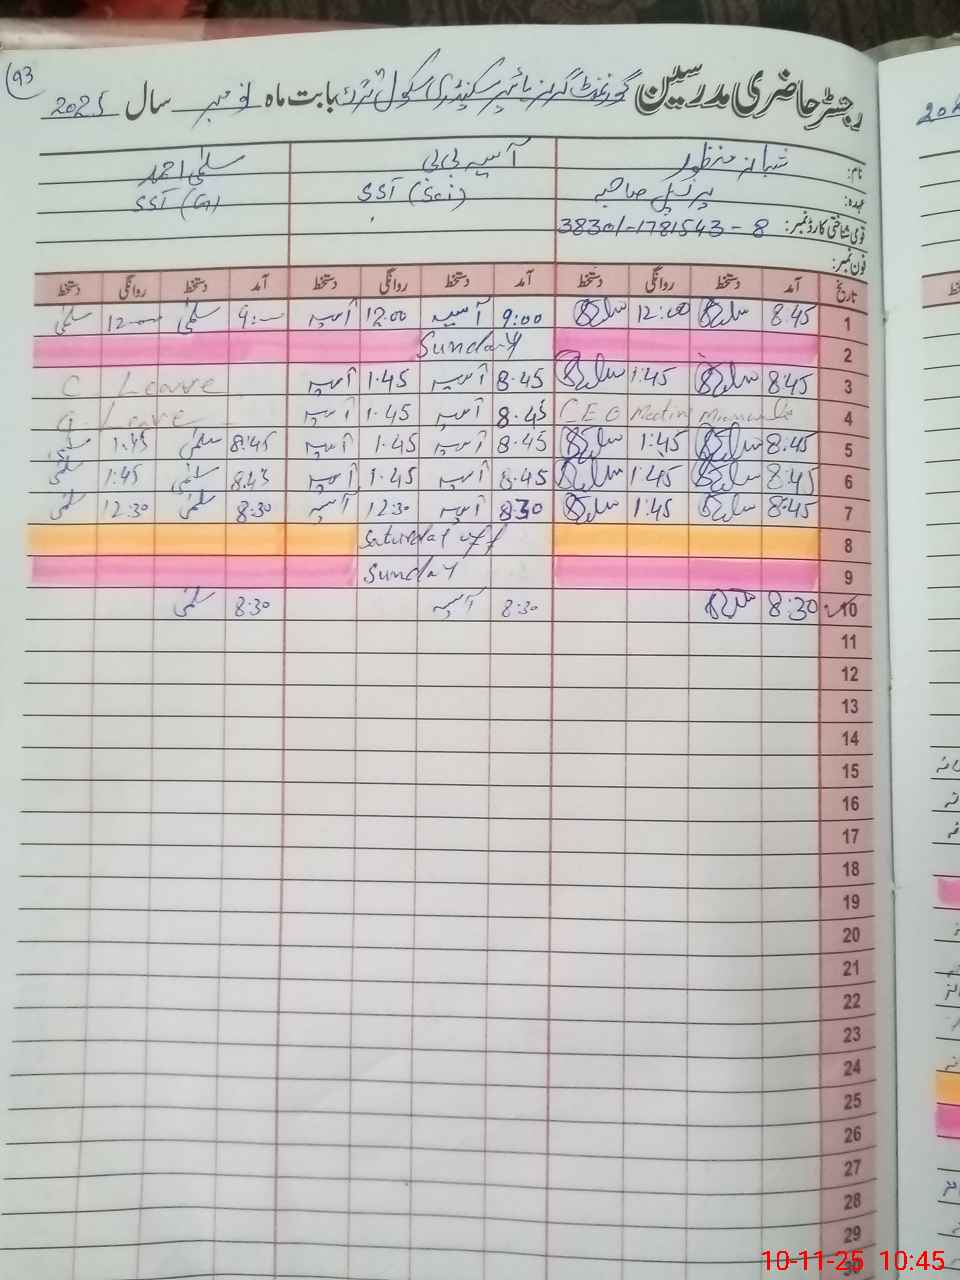 93
رجسٹر حاضری مدرسین گورنمنٹ گرلز ہائیر سیکنڈری سکول بابت ماہ نومبر سال 2025
نام: شبانہ منظور آسیہ بی بی سلمٰی احمد
عہدہ: پرنسپل صاحبہ SST (Sci) SST (G)
قومی شناختی کارڈ نمبر: 38301-1781543-8
فون نمبر:
تاریخ آمد دستخط روانگی دستخط آمد دستخط روانگی دستخط آمد دستخط روانگی دستخط
1 8:45 12:00 9:00 آسیہ 12:00 آسیہ 9:00 سلمٰی 12:00 سلمٰی
2 Sunday
3 8:45 1:45 8.45 آسیہ 1.45 آسیہ C Leave
4 CEO Meeting 8.45 آسیہ 1.45 آسیہ Leave
5 8:45 1:45 8.45 آسیہ 1.45 آسیہ 8:45 سلمٰی 1:45
6 8:45 1:45 8.45 آسیہ 1.45 آسیہ 8:45 سلمٰی 1:45 سلمٰی
7 8:45 1:45 8:30 آسیہ 12:30 آسیہ 8:30 سلمٰی 12:30 سلمٰی
8 Saturday off
9 Sunday
10 8:30 8:30 آسیہ 8:30 سلمٰی
11
12
13
14
15
16
17
18
19
20
21
22
23
24
25
26
27
28
29
30
10-11-25 10:45